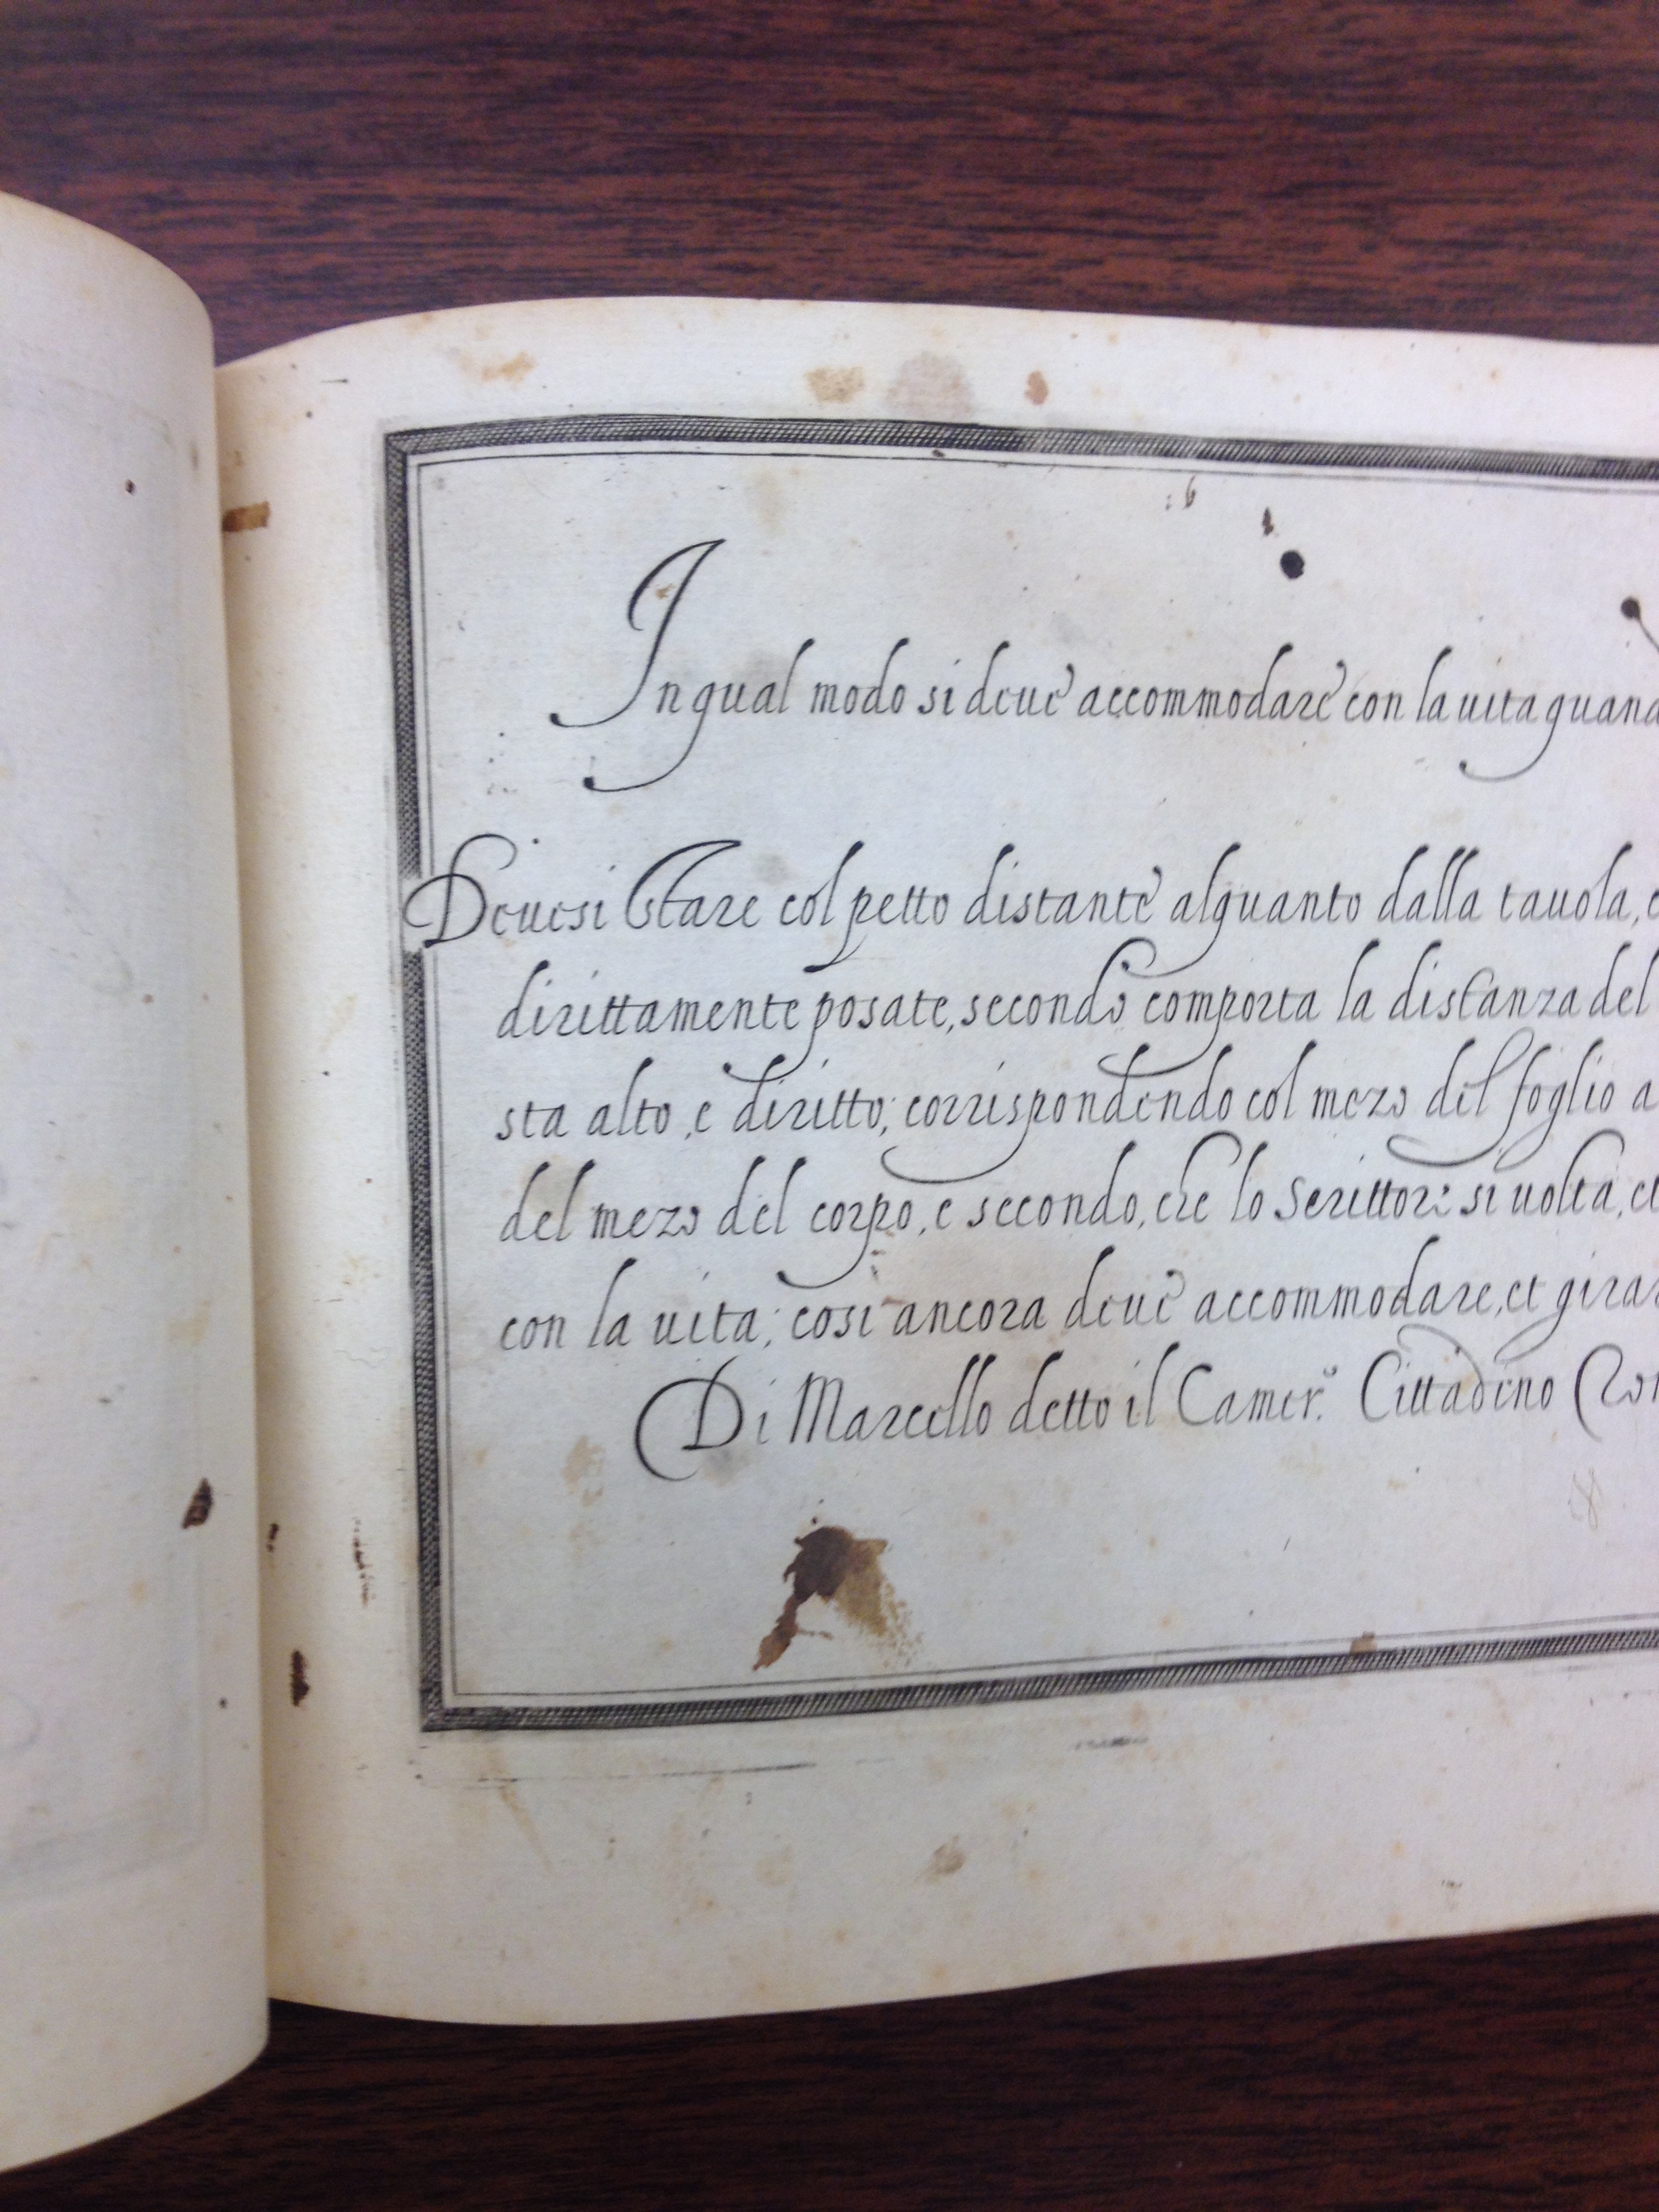 In qual modo si deue accommodare con la uita quand
Deuesi Stare col petto distante alquanto dalla tauola, e
dirittamente posate, secondo comporta la distanza del
sta alto, e diritto; corrispondendo col mezo del foglio a
del mezo del corpo, e secondo, che lo Scrittore si uolta, et
con la uita; cosi ancora deue accommodare, et girar
Di Marcello detto il Camer.º Cittadino Rom